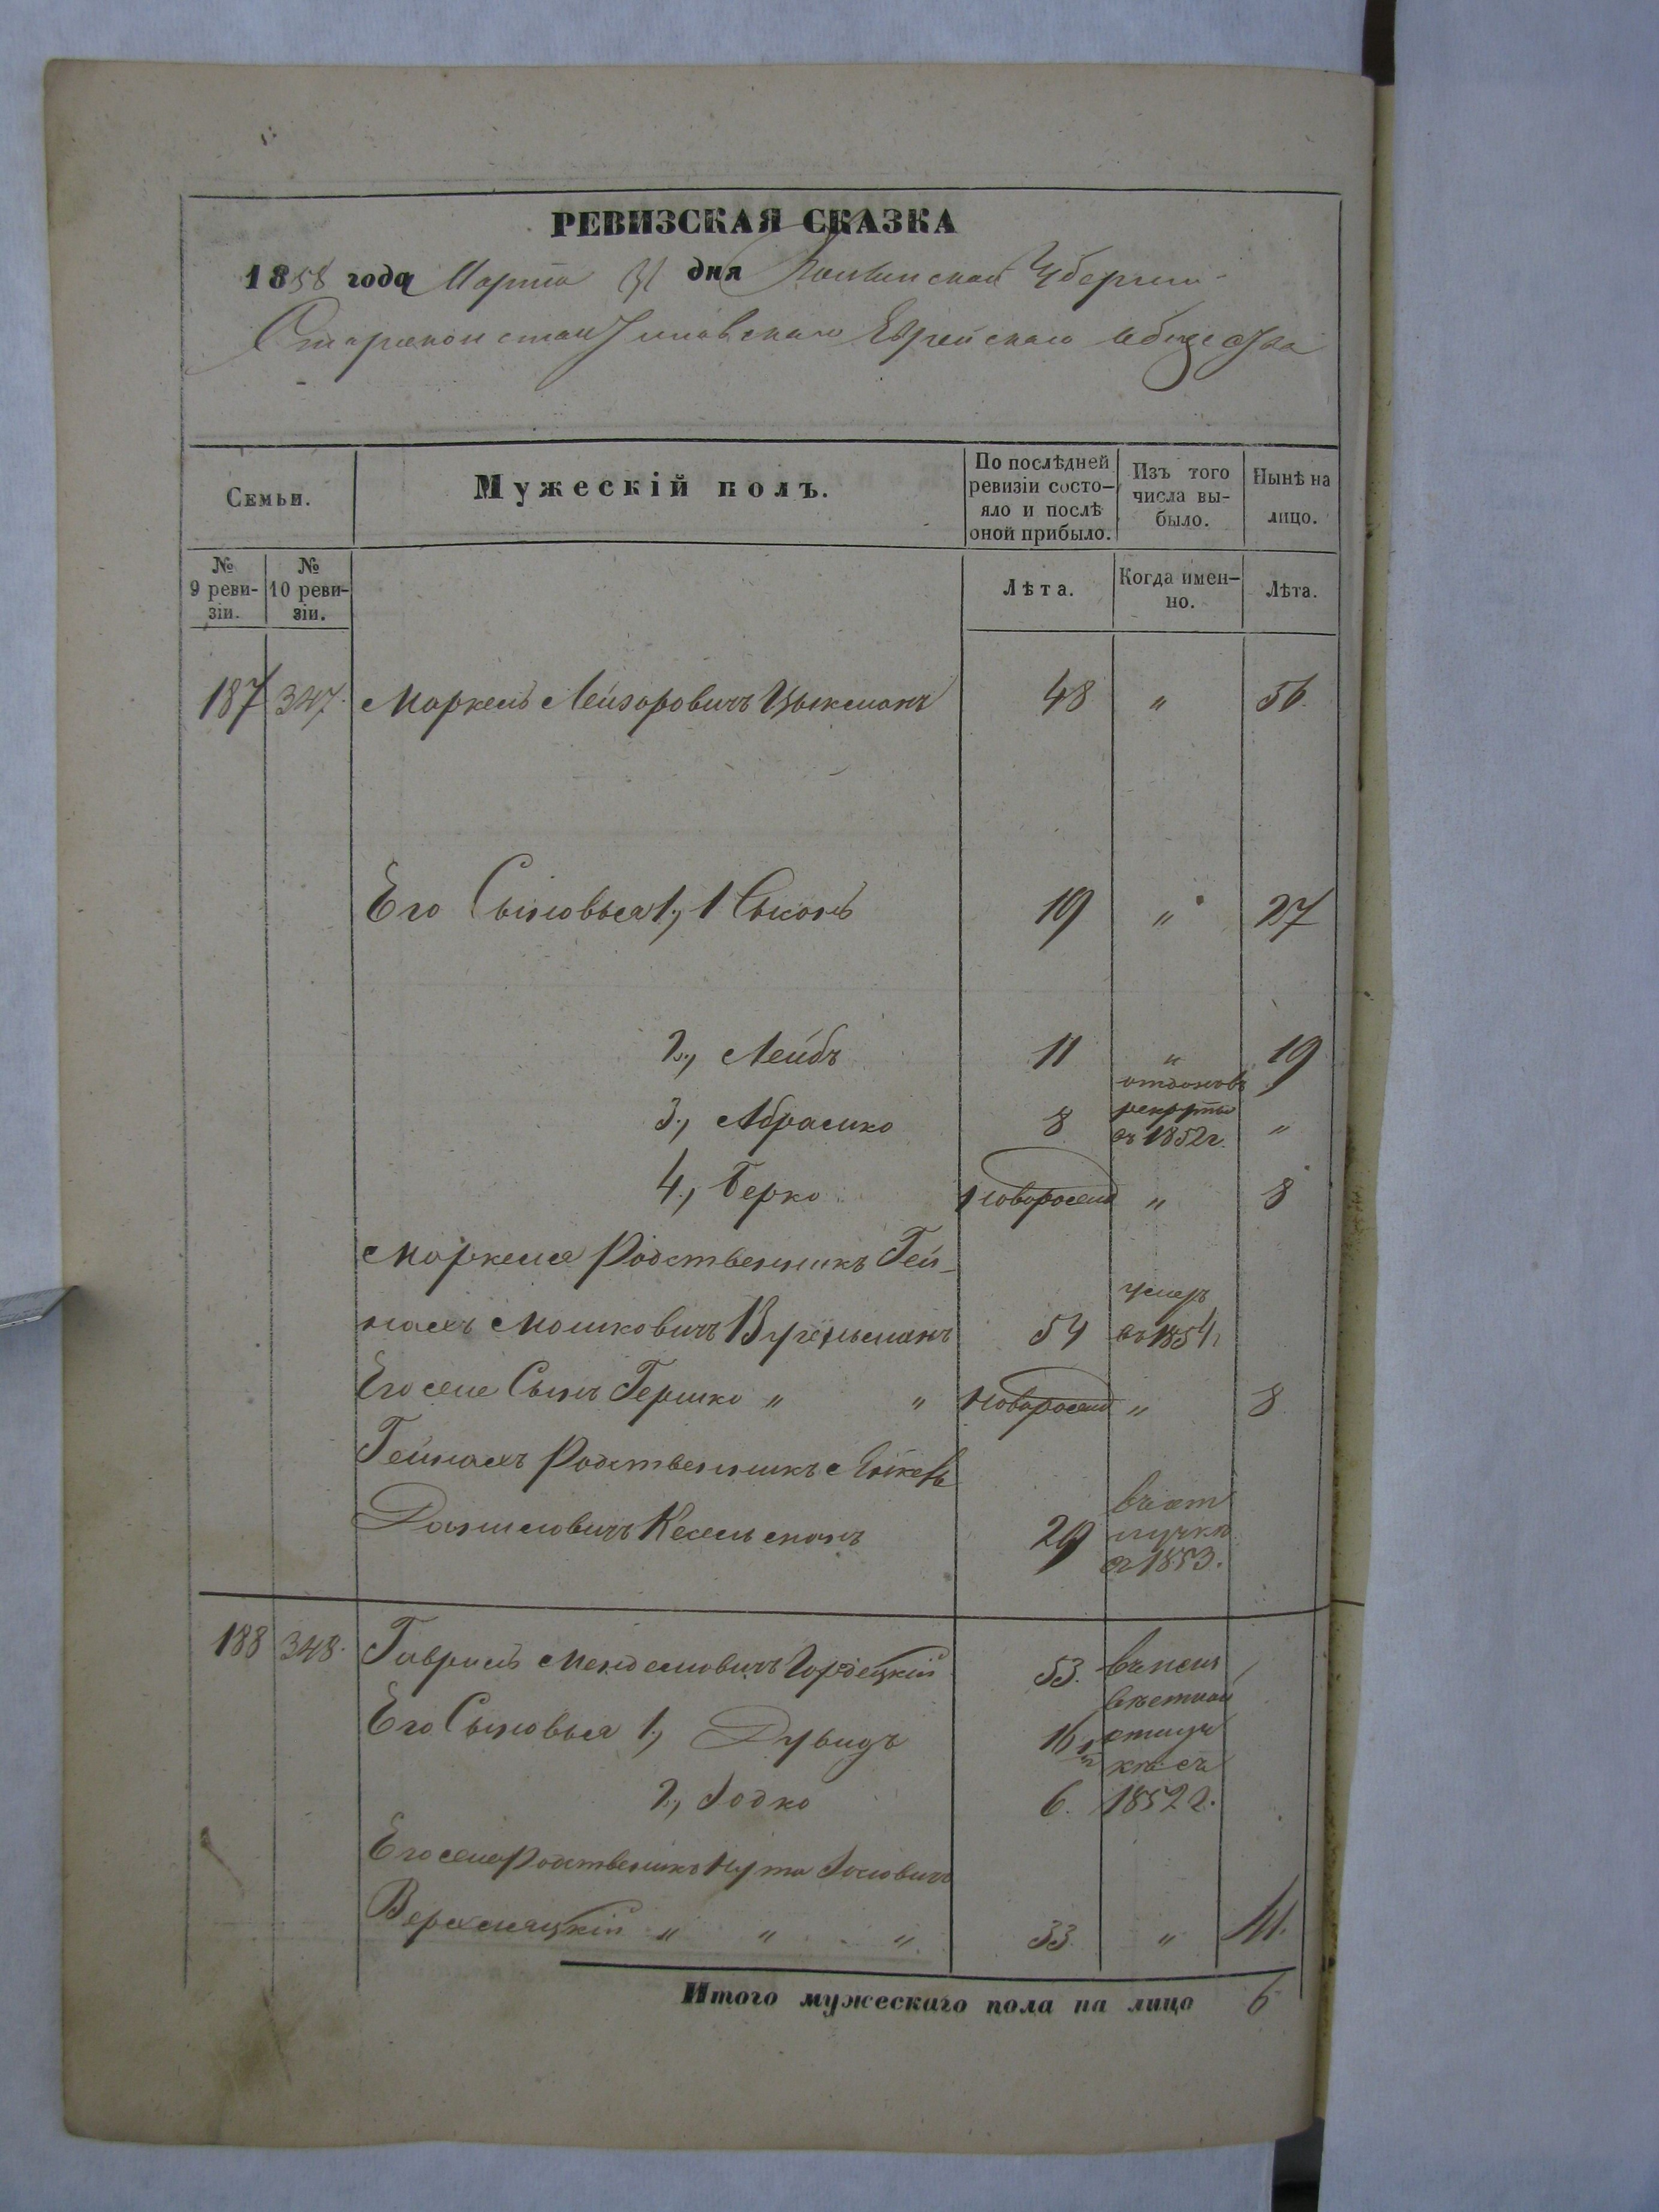 РЕВИЗСКАЯ СКАЗКА
1858 года Марта 31 дня Волынской Губернии
Староконстантиновскаго Еврейскаго общества
Семьи.
Мужескій полъ.
По послѣдней ревизіи состо-
яло и послѣ
оной прибыло.
Изъ того
числа вы-
было.
Нынѣ на
лицо.
№
9 реви-
зіи.
№
10 реви-
зіи.
Лѣта.
Когда имен-
но.
Лѣта.
187 347. Маркель Лейзаровичъ 48 " 56.
Его Сыновья 1, 19 " 27
2, Лейбъ 11 " 19
3, Абрамко 8 отдановъ рекруты въ 1852г. "
4, Берко новорожд " 8
Маркеля Родственникъ Гей-
нахъ Мошковичъ 54 умеръ въ 1854г
Его же Сынъ Гершко " " новорожд " 8
Гейнахъ Родственникъ
Даниловичъ Кесельманъ 29 въ от
лучкѣ
съ 1853.
188 348. Гавриль Менделовичъ Городецкій 53. въ неиз
вѣстной
Его Сыновья 1, Дувидъ 16 1/2 отлуч
кѣ съ
2, Іодко 6. 1852 г.
Его же Родственикъ Нута
" " " 33. " 41.
Итого мужескаго пола на лицо 6